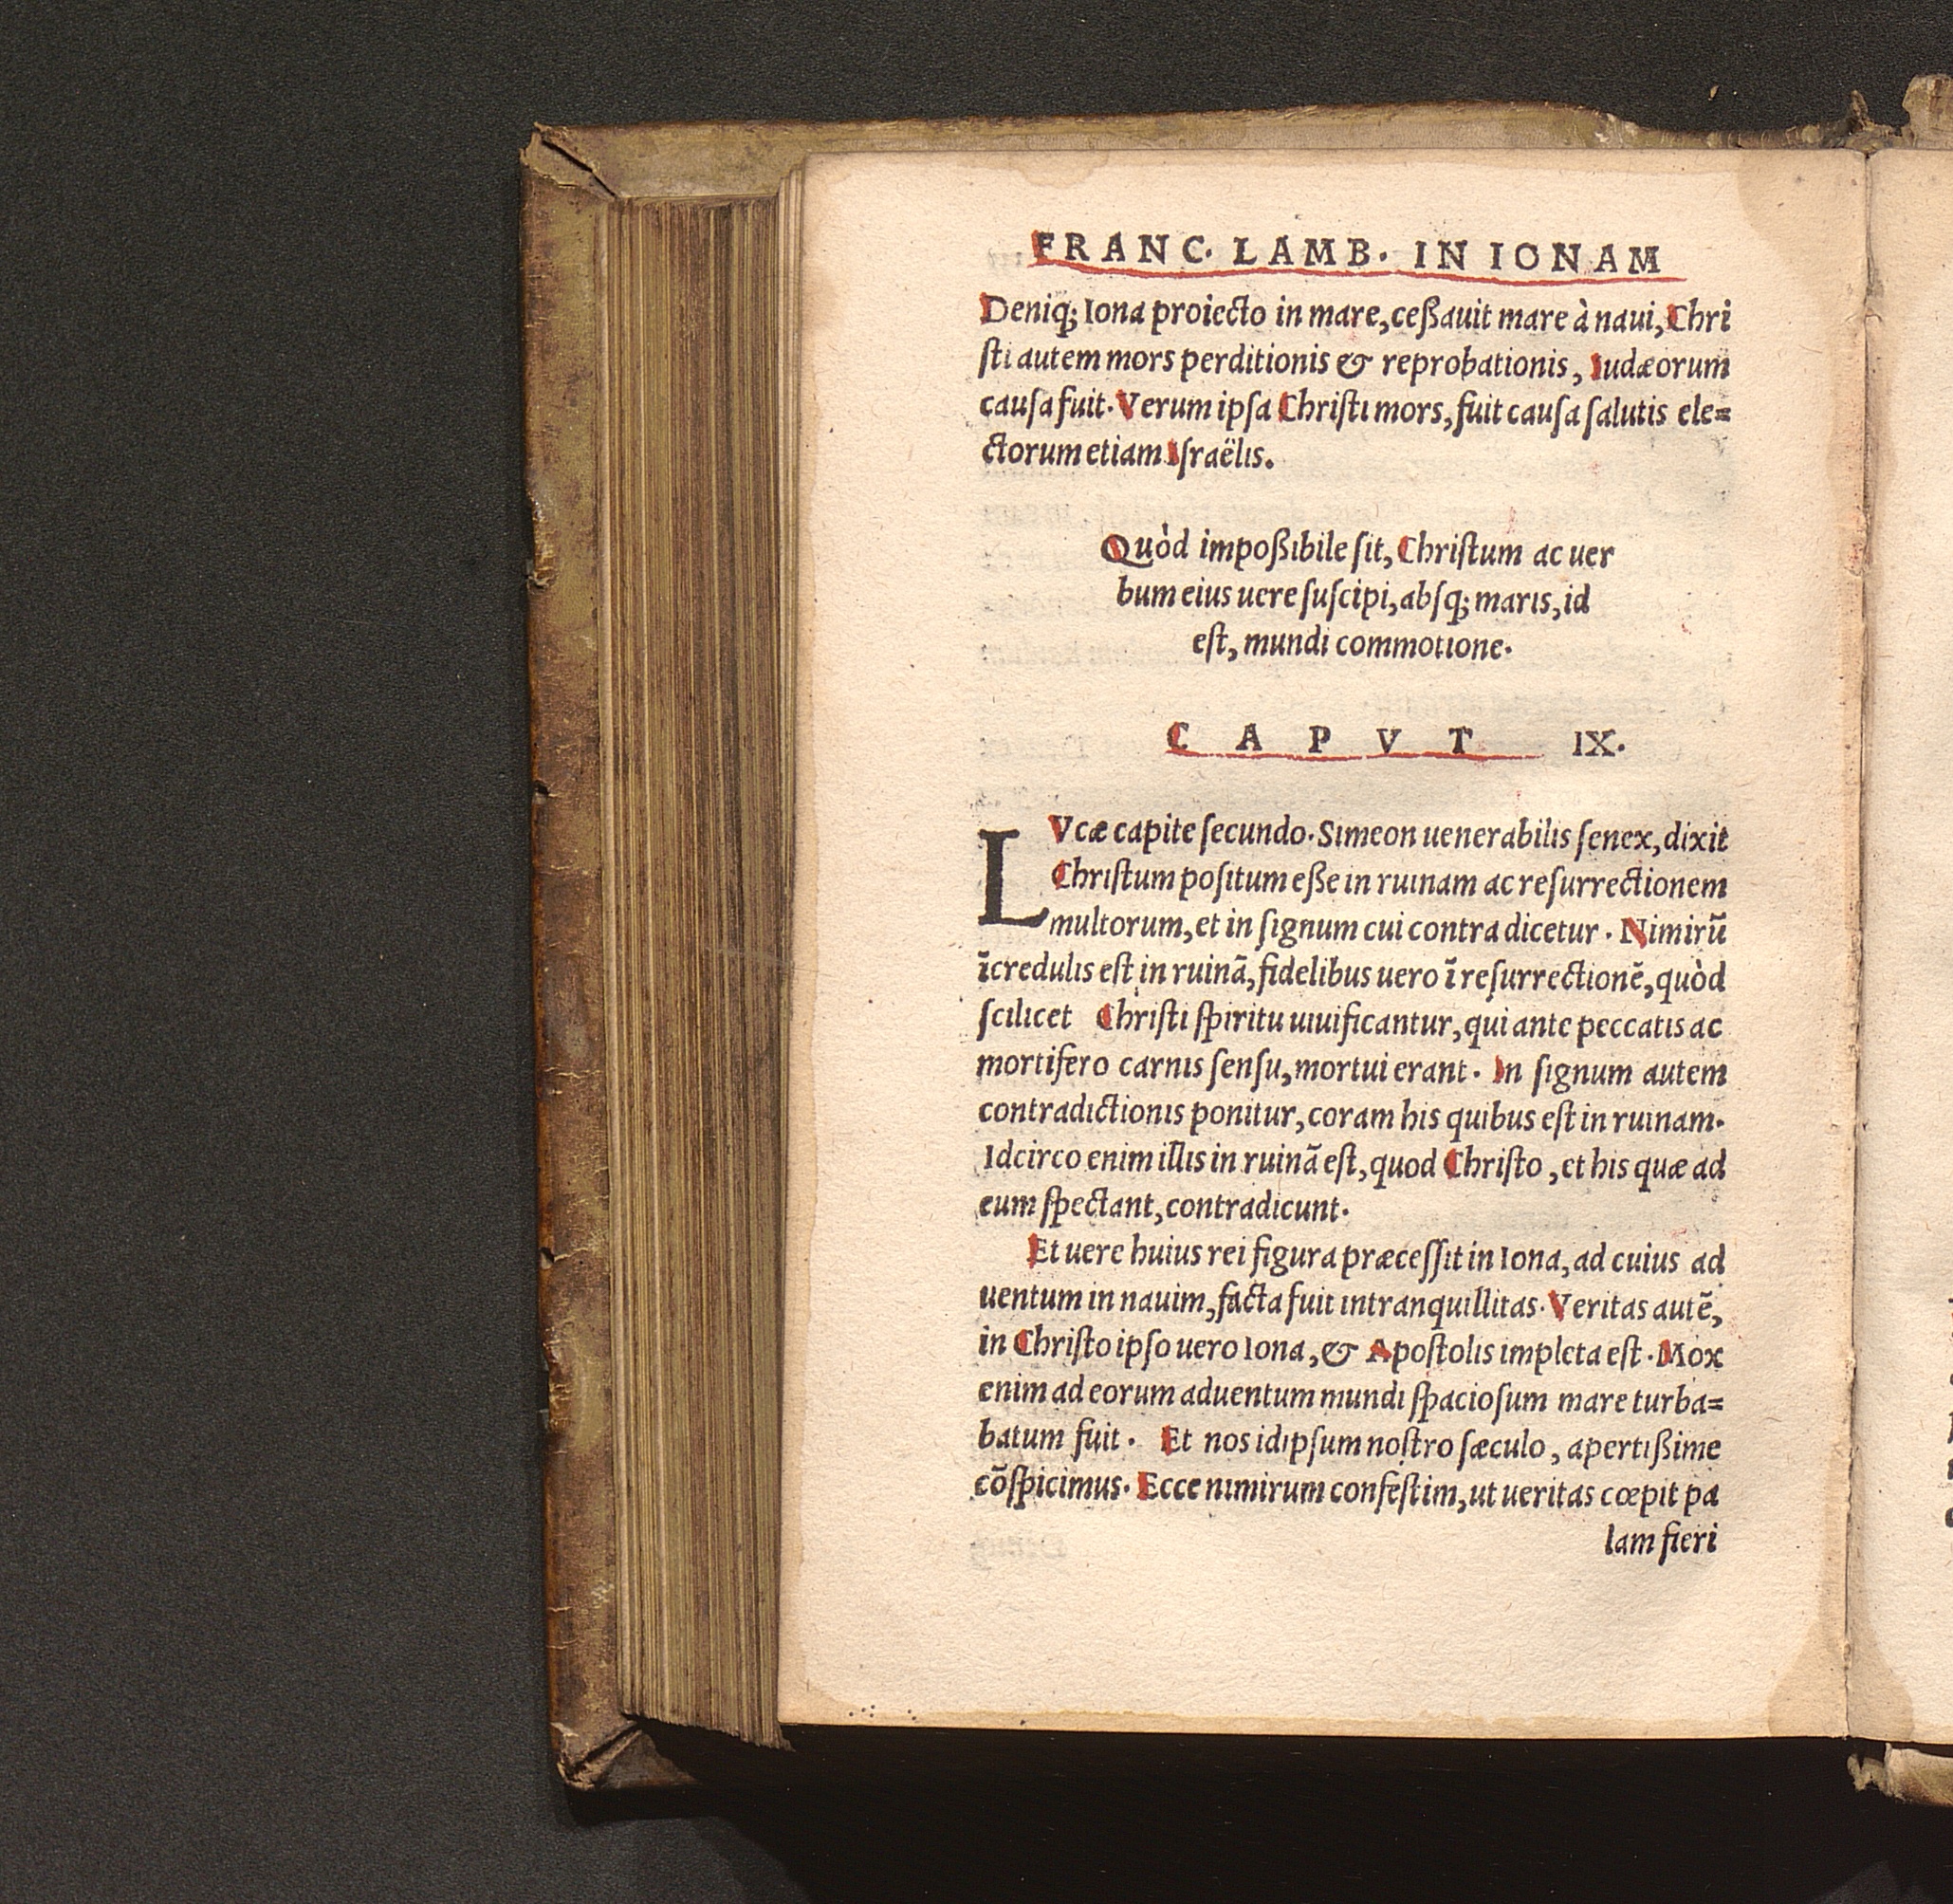 FRANC. LAMB. IN IONAM
Deniq; Iona proiecto in mare, ceßauit mare à naui, Chri
ſti autem mors perditionis & reprobationis, Iudæorum
cauſa fuit. Verum ipſa Chriſti mors, fuit cauſa ſalutis ele=
ctorum etiam Iſraëlis.
Quòd impoßibile ſit, Chriſtum ac uer
bum eius uere ſuſcipi, abſq; maris, id
eſt, mundi commotione.
CAPVT IX.
LVcæ capite ſecundo. Simeon uenerabilis ſenex, dixit
Chriſtum poſitum eße in ruinam ac reſurrectionem
multorum, et in ſignum cui contra dicetur. Nimirũ
ĩcredulis eſt in ruinã, fidelibus uero ĩ reſurrectionẽ, quòd
ſcilicet Chriſti ſpiritu uiuificantur, qui ante peccatis ac
mortifero carnis ſenſu, mortui erant. In ſignum autem
contradictionis ponitur, coram his quibus eſt in ruinam.
Idcirco enim illis in ruinã eſt, quod Chriſto, et his quæ ad
eum ſpectant, contradicunt.
Et uere huius rei figura præceſſit in Iona, ad cuius ad
uentum in nauim, facta fuit intranquillitas. Veritas autẽ,
in Chriſto ipſo uero Iona, & Apoſtolis impleta eſt. Mox
enim ad eorum aduentum mundi ſpacioſum mare turba=
batum fuit. Et nos idipſum noſtro ſæculo, apertißime
cõſpicimus. Ecce nimirum confeſtim, ut ueritas cœpit pa
lam fieri